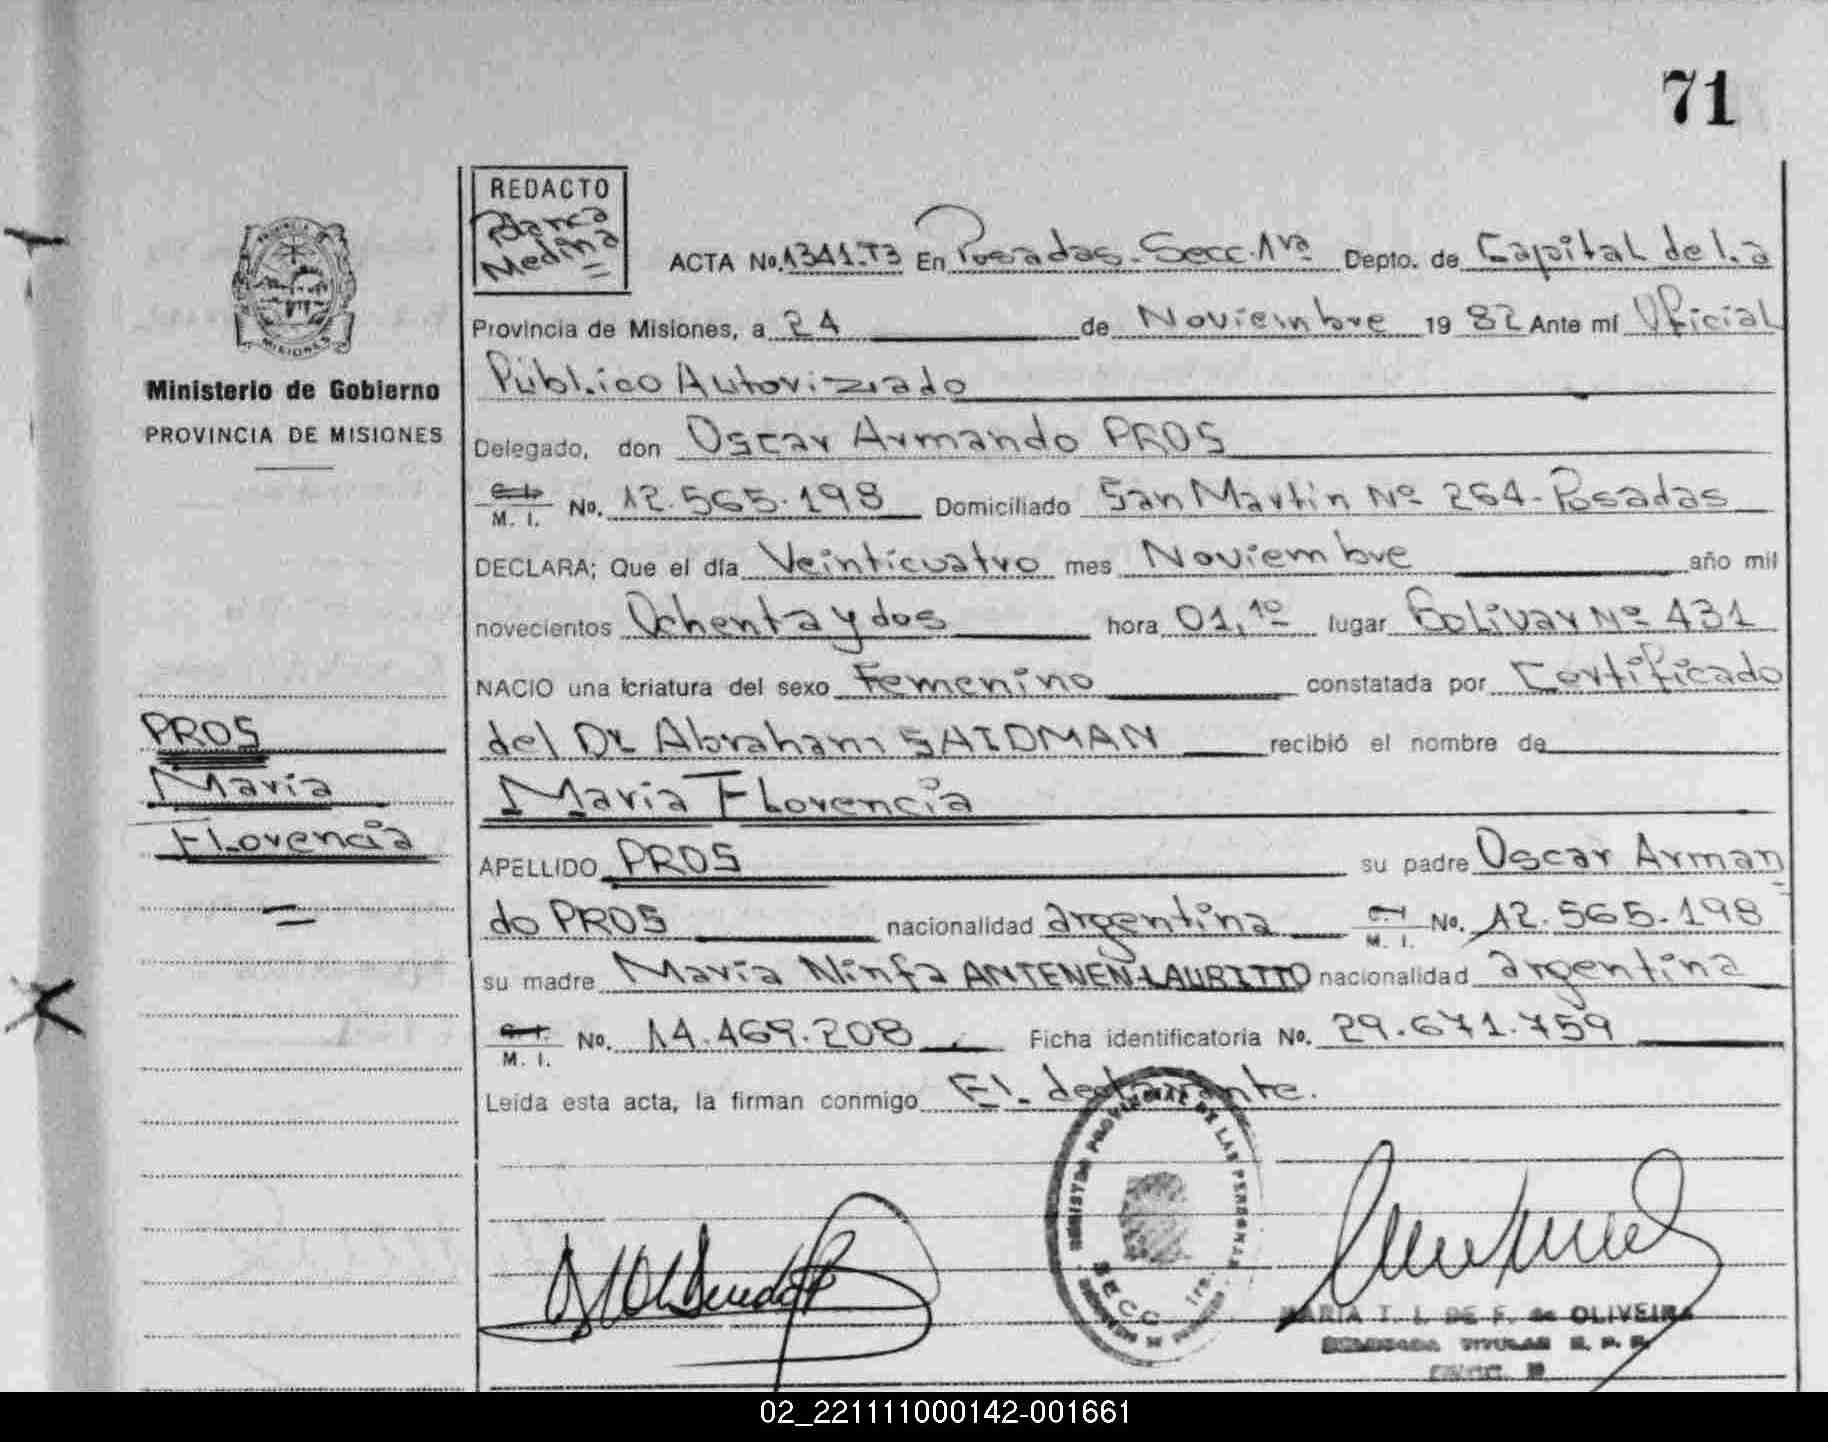 71
REDACTO
Blanca
Medina
ACTA No. 1341.T3 En Posadas-Secc.1ra Depto. de Capital de la
Provincia de Misiones, a 24 de Noviembre 1982 Ante mí Oficial
Público Autorizado
Delegado, don Oscar Armando PROS
C.I.
M. I. No. 12.565.198 Domiciliado San Martín Nº 264-Posadas
DECLARA; Que el día Veinticuatro mes Noviembre año mil
novecientos Ochenta y dos hora 01,10 lugar Bolívar Nº 431
NACIO una criatura del sexo Femenino constatada por Certificado
del Dr Abraham SAIDMAN recibió el nombre de
María Florencia
APELLIDO PROS su padre Oscar Arman
do PROS nacionalidad argentina C.I. M. I. No. 12.565.198
su madre María Ninfa ANTENEN LAURITTO nacionalidad argentina
C.I.
M. I. No. 14.469.208 Ficha identificatoria No. 29.671.759
Leída esta acta, la firman conmigo El declarante.
MISIONES
Ministerio de Gobierno
PROVINCIA DE MISIONES
PROS
María
Florencia
REGISTRO PROVINCIAL DE LAS PERSONAS
SECC. 1ra.
MARIA T. I. DE F. de OLIVEIRA
DELEGADA TITULAR R. P. P.
02_221111000142-001661